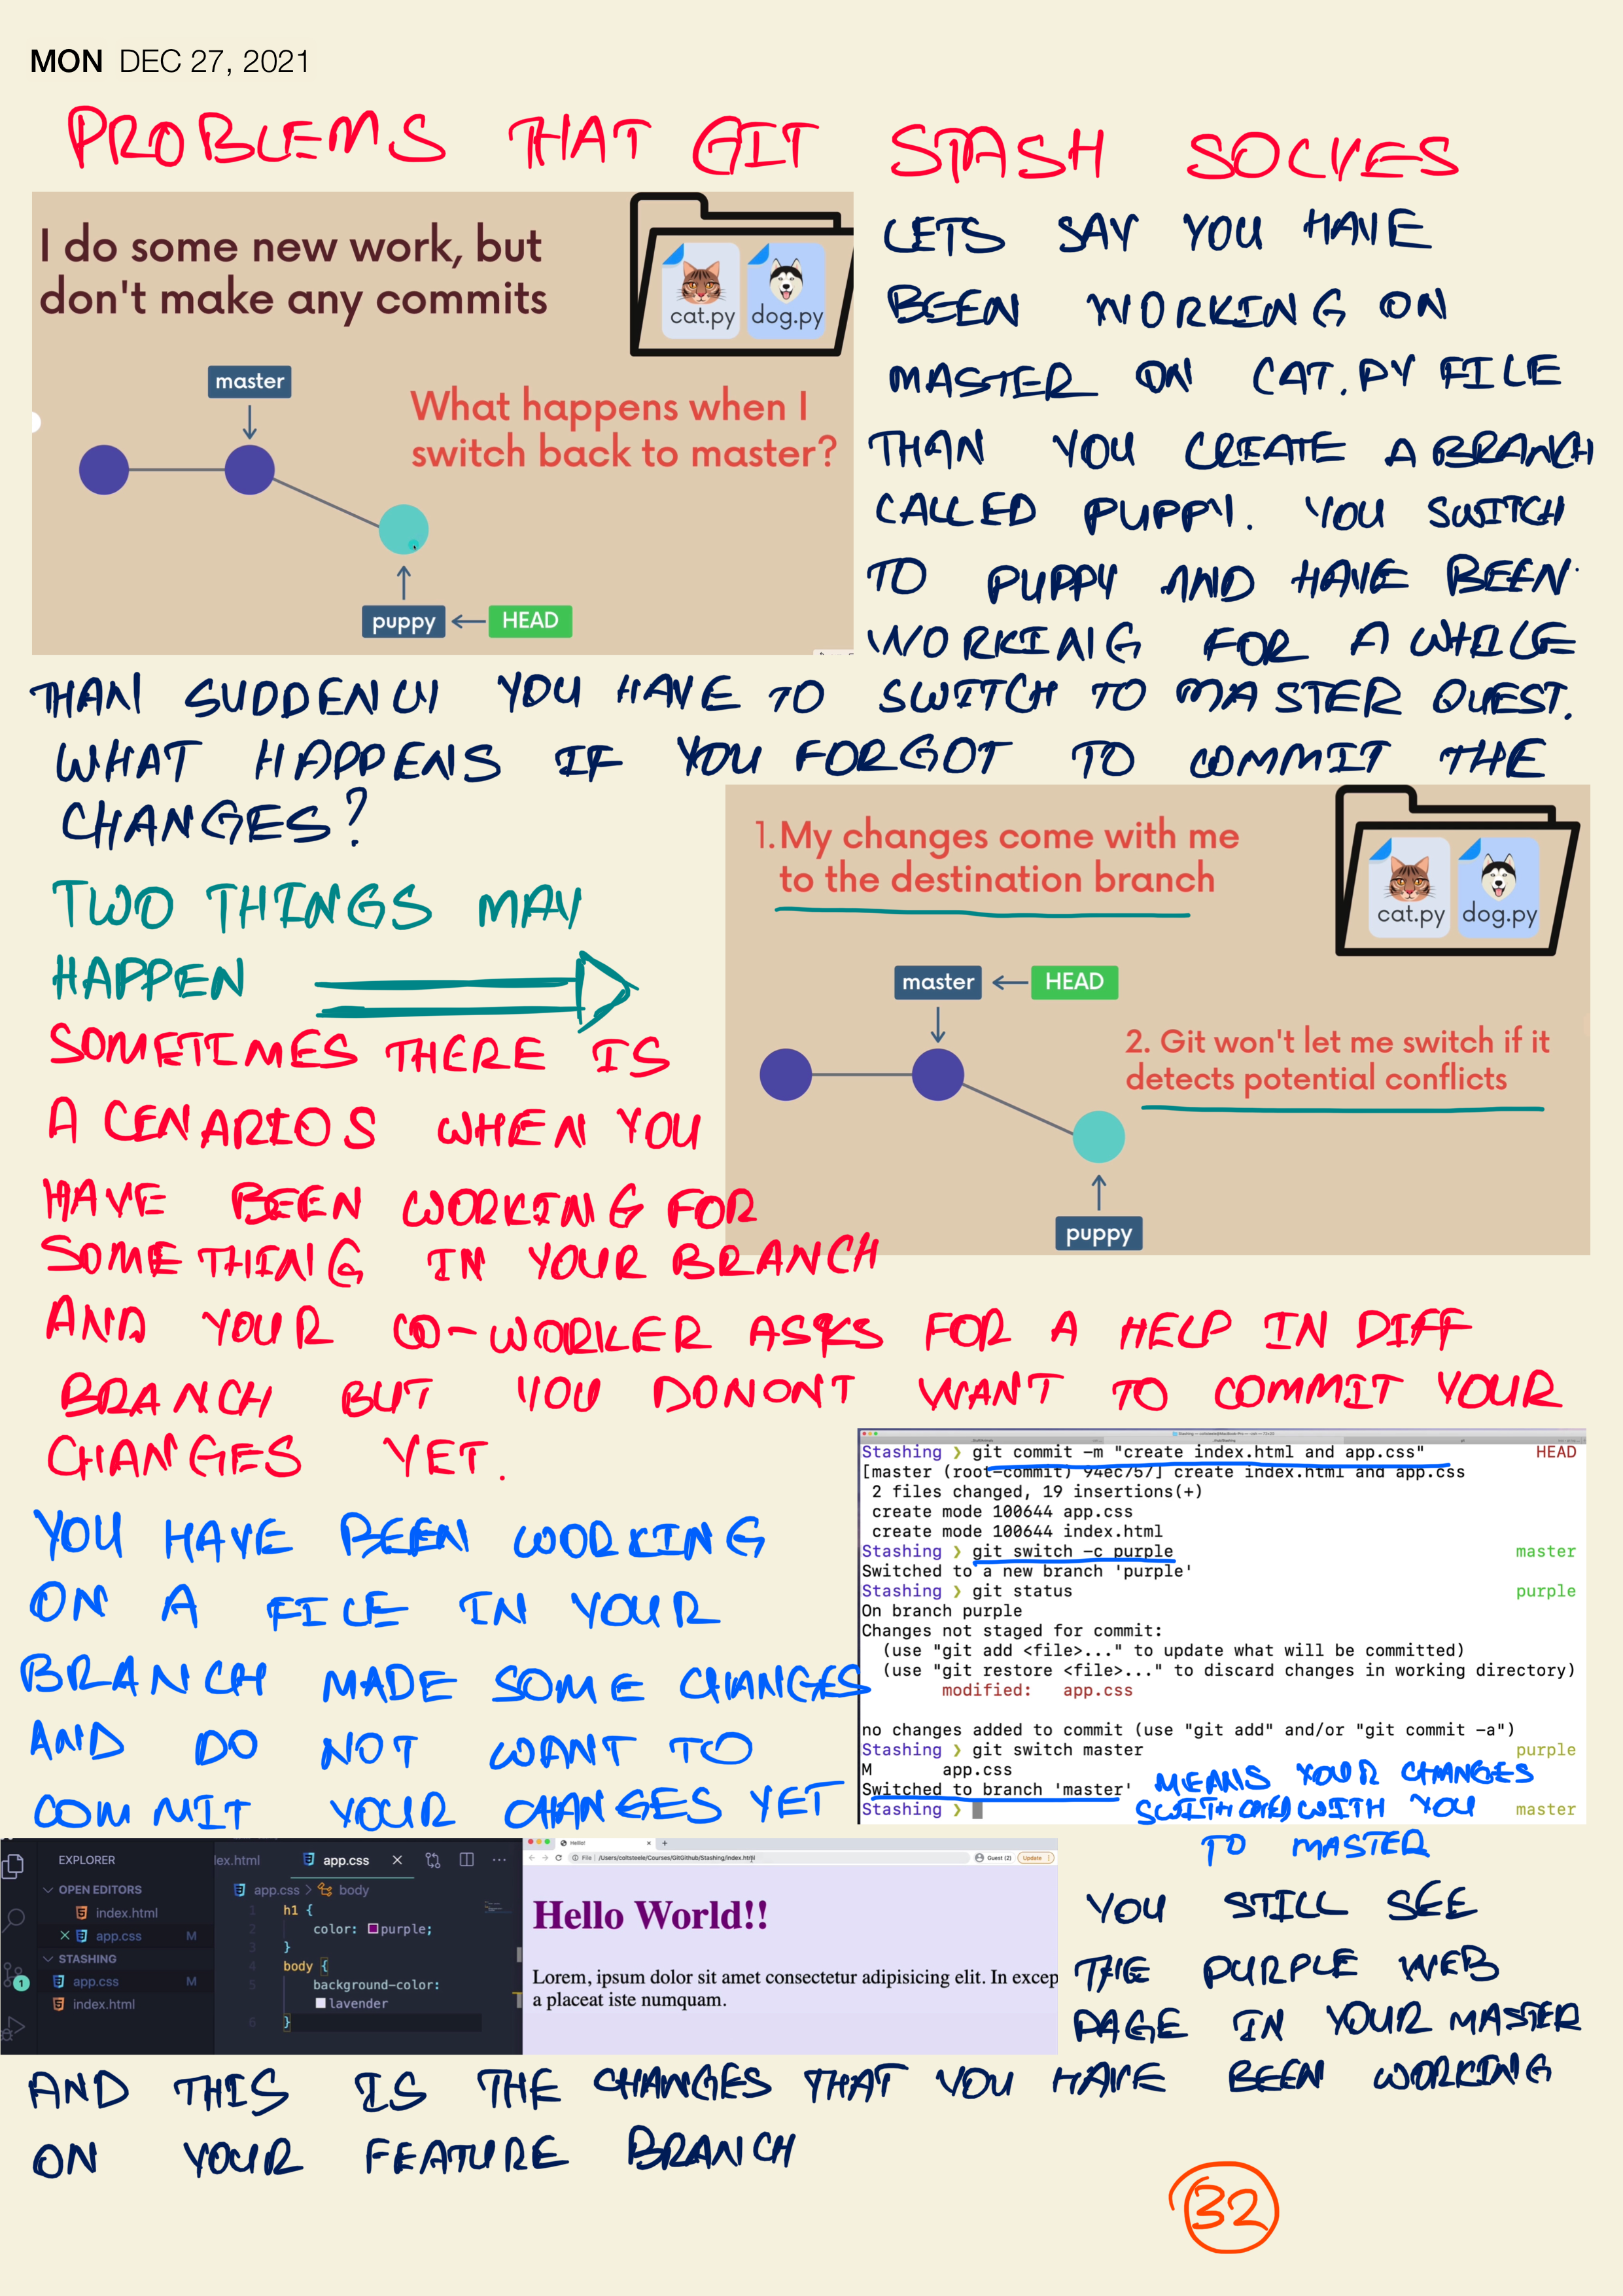 MON DEC 27, 2021
PROBLEMS THAT GIT STASH SOLVES
I do some new work, but
don't make any commits
cat.py dog.py
master
What happens when I
switch back to master?
puppy HEAD
LETS SAY YOU HAVE
BEEN WORKING ON
MASTER ON CAT.PY FILE
THAN YOU CREATE A BRANCH
CALLED PUPPY. YOU SWITCH
TO PUPPY AND HAVE BEEN
WORKING FOR A WHILE
THAN SUDDENLY YOU HAVE TO SWITCH TO MASTER QUEST.
WHAT HAPPENS IF YOU FORGOT TO COMMIT THE
CHANGES?
TWO THINGS MAY
HAPPEN
1. My changes come with me
to the destination branch
cat.py dog.py
master HEAD
2. Git won't let me switch if it
detects potential conflicts
puppy
SOMETIMES THERE IS
A CENARIOS WHEN YOU
HAVE BEEN WORKING FOR
SOMETHING IN YOUR BRANCH
AND YOUR CO-WORKER ASKS FOR A HELP IN DIFF
BRANCH BUT YOU DONONT WANT TO COMMIT YOUR
CHANGES YET.
YOU HAVE BEEN WORKING
ON A FILE IN YOUR
BRANCH MADE SOME CHANGES
AND DO NOT WANT TO
COMMIT YOUR CHANGES YET
Stashing ❯ git commit -m "create index.html and app.css" HEAD
[master (root-commit) 94ec757] create index.html and app.css
2 files changed, 19 insertions(+)
create mode 100644 app.css
create mode 100644 index.html
Stashing ❯ git switch -c purple master
Switched to a new branch 'purple'
Stashing ❯ git status purple
On branch purple
Changes not staged for commit:
(use "git add <file>..." to update what will be committed)
(use "git restore <file>..." to discard changes in working directory)
modified: app.css
no changes added to commit (use "git add" and/or "git commit -a")
Stashing ❯ git switch master purple
M app.css
Switched to branch 'master'
Stashing ❯ master
MEANS YOUR CHANGES
SWITCHED WITH YOU
TO MASTER
EXPLORER
OPEN EDITORS
index.html
app.css M
STASHING
app.css M
index.html
1
lex.html app.css
app.css > body
1 h1 {
2 color: purple;
3 }
4 body {
5 background-color:
lavender
6 }
Hello!
File | /Users/coltsteele/Courses/GitGithub/Stashing/index.html Guest (2) Update
Hello World!!
Lorem, ipsum dolor sit amet consectetur adipisicing elit. In excep
a placeat iste numquam.
YOU STILL SEE
THE PURPLE WEB
PAGE IN YOUR MASTER
AND THIS IS THE CHANGES THAT YOU HAVE BEEN WORKING
ON YOUR FEATURE BRANCH
32